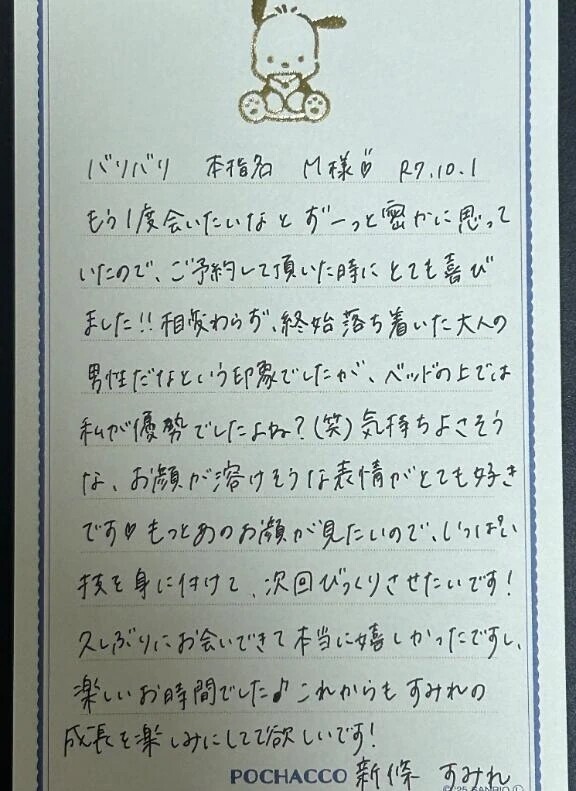 バリバリ 本指名 M様♡ R7.10.1
もう1度会いたいなと ずーっと密かに思って
いたので、ご予約して頂いた時にとても喜び
ました!!相変わらず、終始落ち着いた大人の
男性だなという印象でしたが、ベッドの上では
私が優勢でしたよね?(笑)気持ちよさそう
な、お顔が溶けそうな表情がとても好き
です♡もっとあのお顔が見たいので、いっぱい
技を身に付けて、次回びっくりさせたいです!
久しぶりにお会いできて本当に嬉しかったですし、
楽しいお時間でした♪これからもすみれの
成長を楽しみにしてて欲しいです!
POCHACCO 新條 すみれ